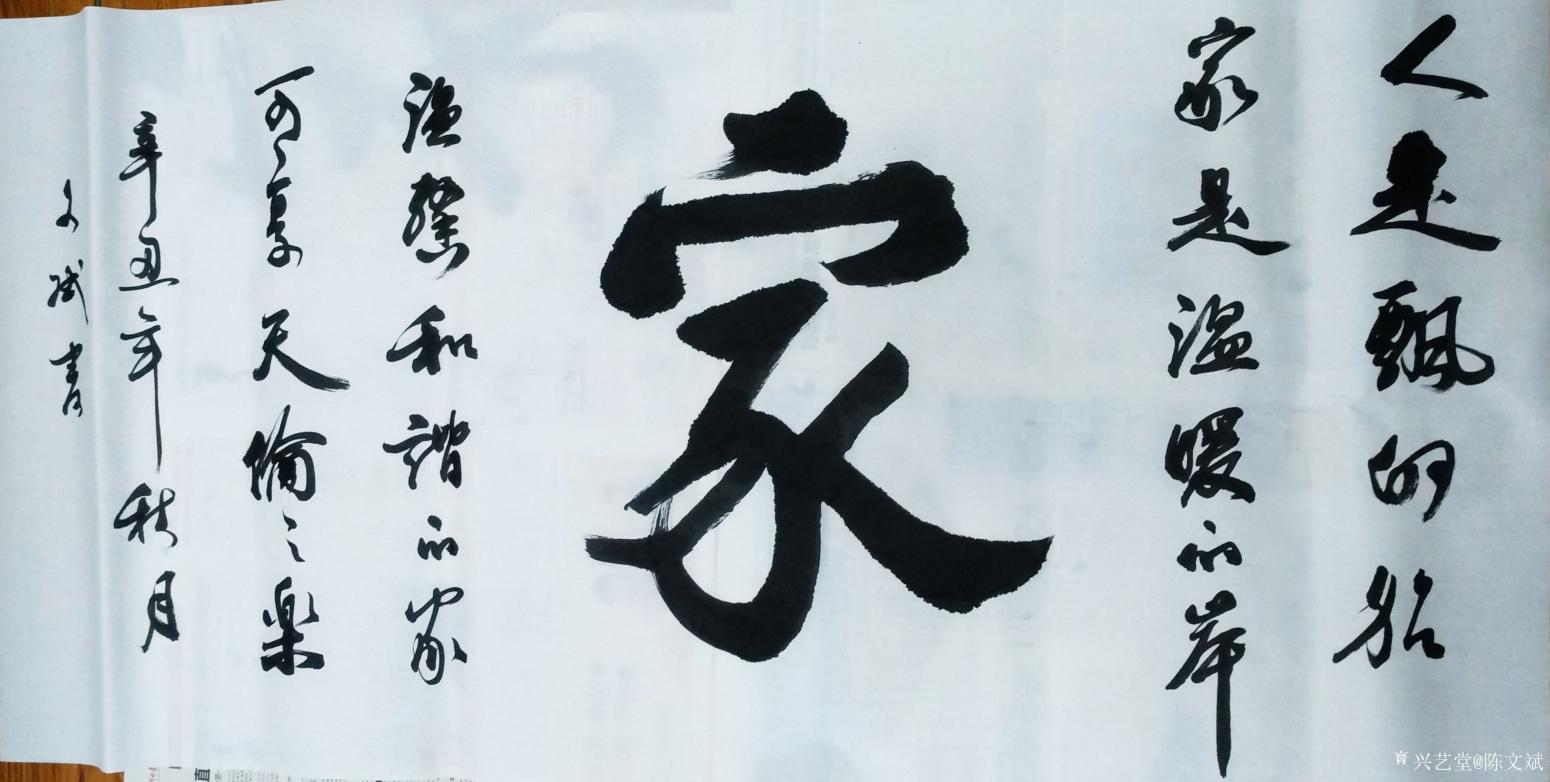 人是飄的船
家是溫暖的岸
家
溫馨和諧的家
可享天倫之樂
辛丑年秋月
文斌書
兴艺堂@陈文斌